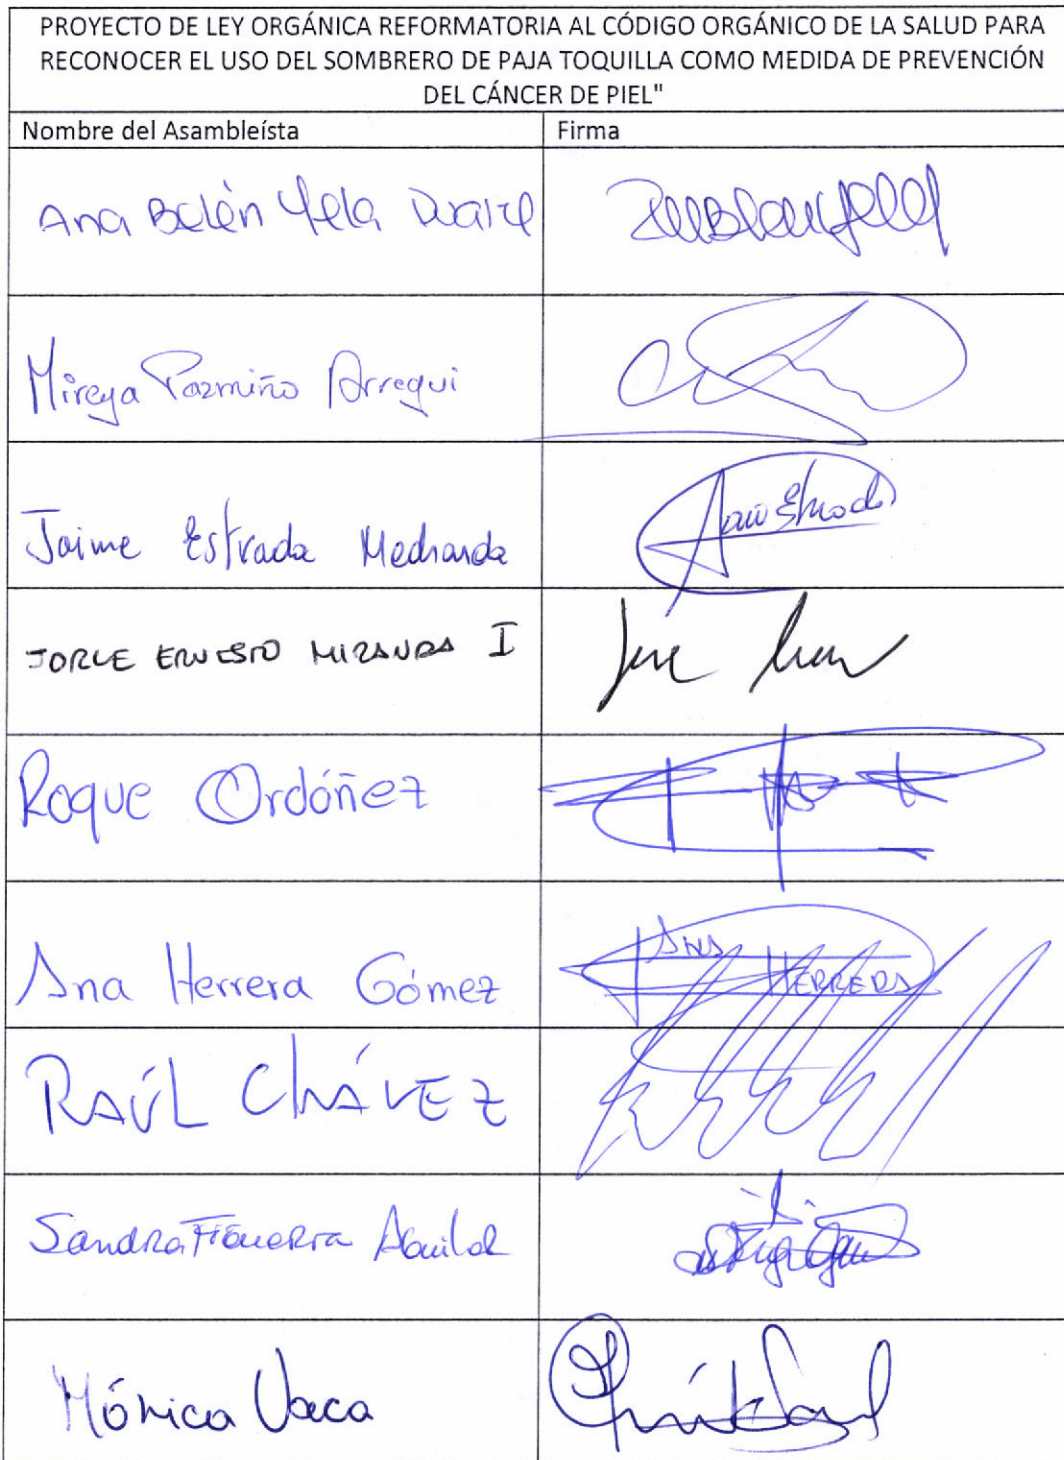 PROYECTO DE LEY ORGÁNICA REFORMATORIA AL CÓDIGO ORGÁNICO DE LA SALUD PARA
RECONOCER EL USO DEL SOMBRERO DE PAJA TOQUILLA COMO MEDIDA DE PREVENCIÓN
DEL CÁNCER DE PIEL"
Nombre del Asambleísta Firma
Ana Belén Yela Duarte
Mireya Pazmiño Arregui
Jaime Estrada Medranda
JORGE ERNESTO MIRANDA I
Roque Ordóñez
Ana Herrera Gómez ANA HERRERA
RAÚL CHÁVEZ
Sandra Figueroa Aguilar
Mónica Vaca